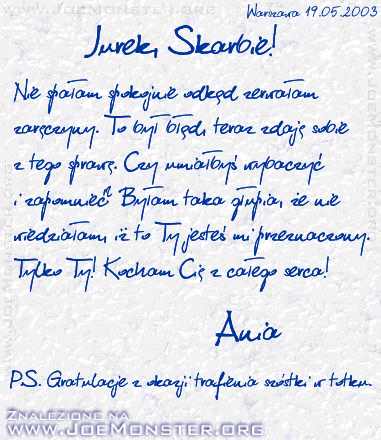 Warszawa 19.05.2003
Jurek, Skarbie!
Nie spałam spokojnie odkąd zerwałam
zaręczyny. To był błąd, teraz zdaję sobie
z tego sprawę. Czy umiałbyś wybaczyć
i zapomnieć? Byłam taka głupia, że nie
wiedziałam, iż to Ty jesteś mi przeznaczony.
Tylko Ty! Kocham Cię z całego serca!
Ania
P.S. Gratulacje z okazji trafienia szóstki w totku.
ZNALEZIONE NA
WWW.JOEMONSTER.ORG